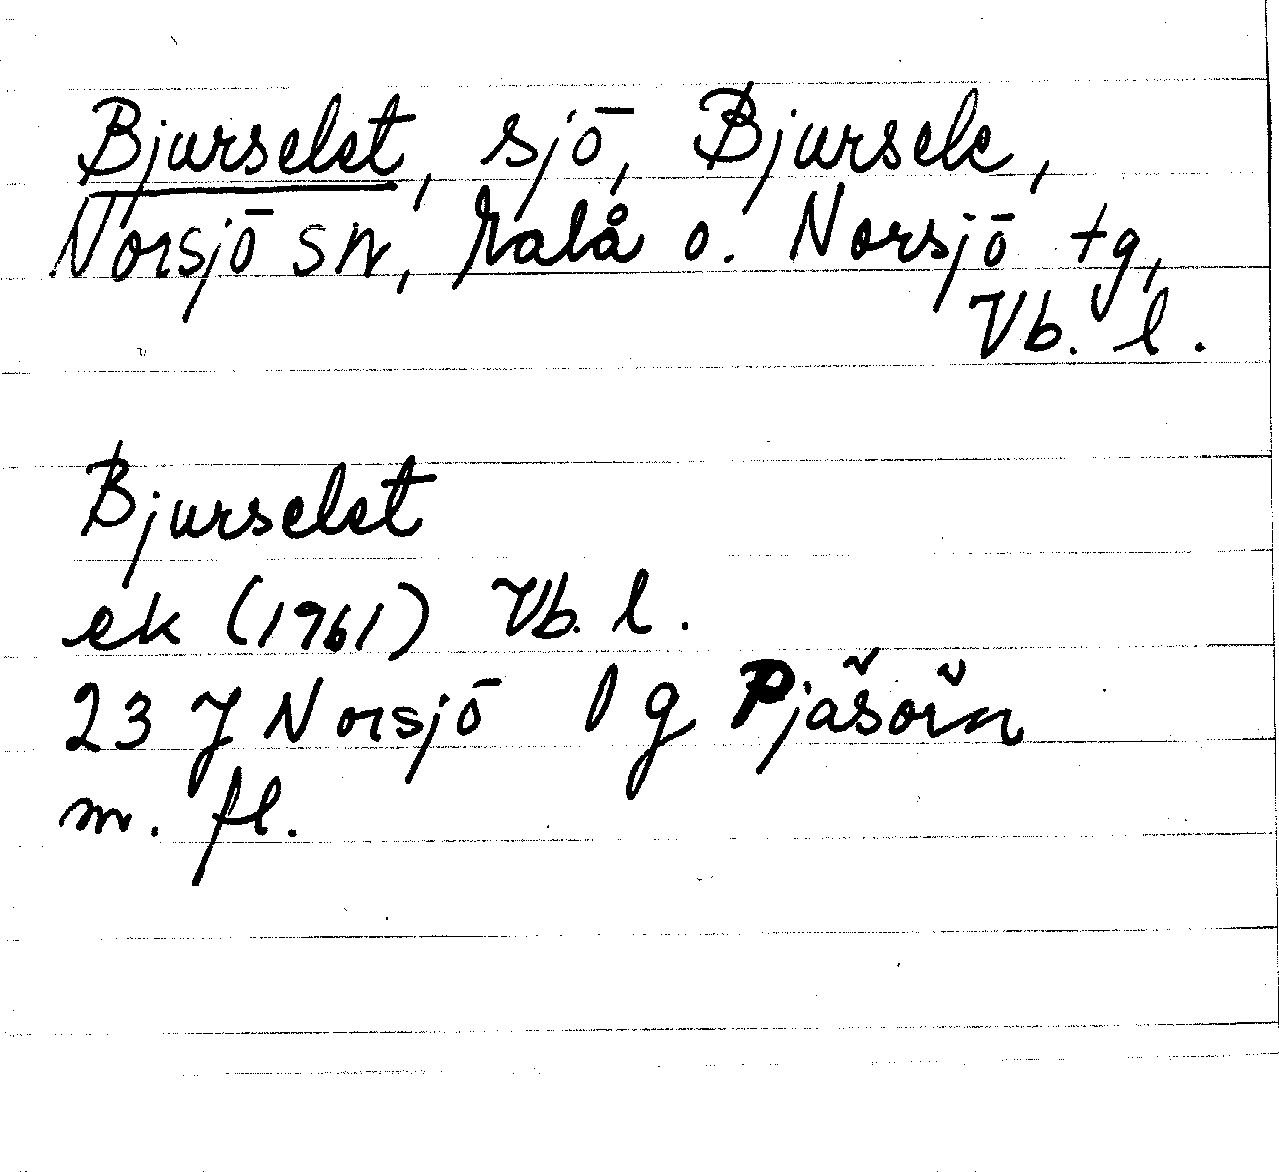 Bjurselet, sjö, Bjursele,
Norsjö sn, Malå o. Norsjö tg,
Vb. l.
Bjurselet
ek (1961) Vb. l.
23 J Norsjö l g
m. fl.